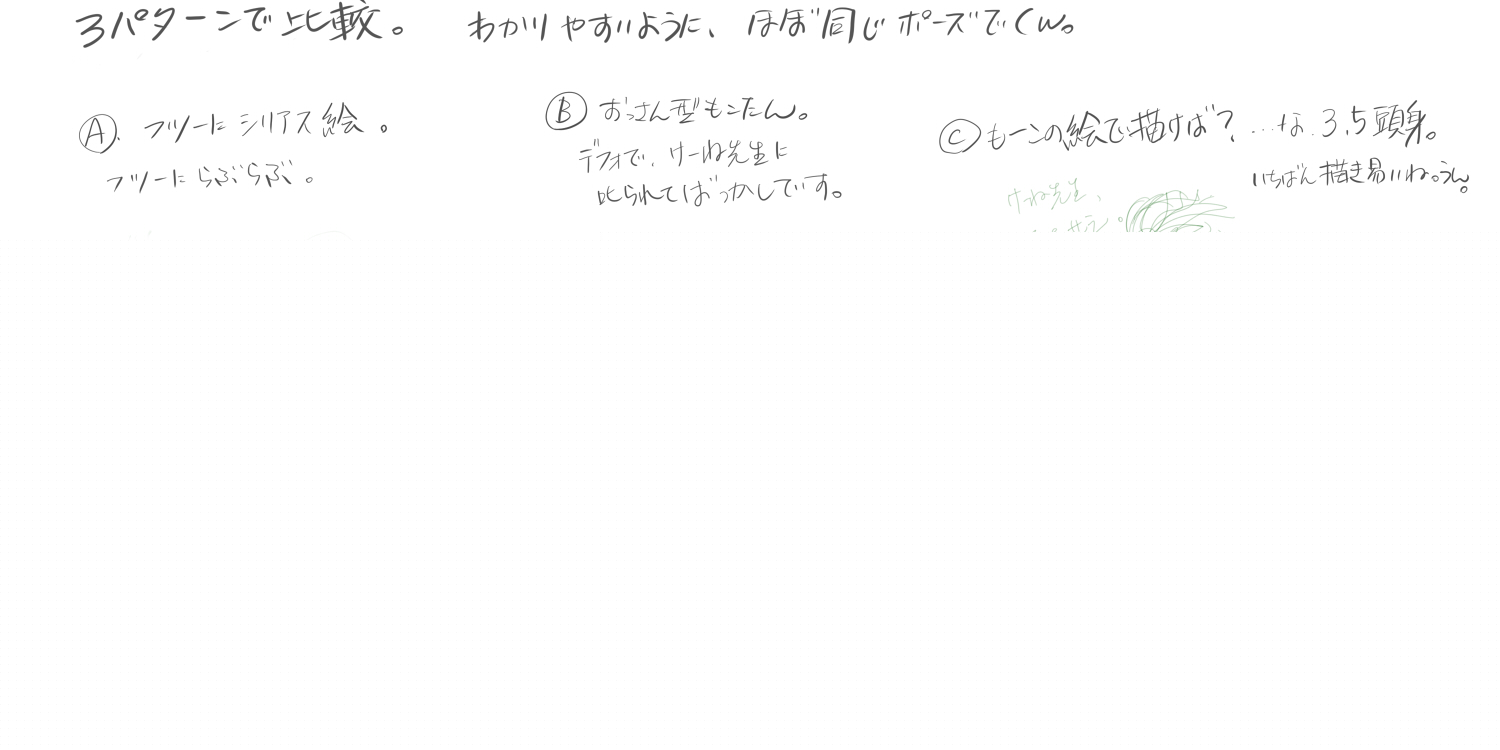 3パターンで比較。 わかりやすいように、ほぼ同じポーズでくん。
Ⓐ. フツーにシリアス絵。
フツーにらぶらぶ。
Ⓑ おっさん型もこたん。
デフォで、けーね先生に
叱られてばっかしでいす。
Ⓒ もーンの絵で描けば?…な 3.5頭身。
いちばん描き易いね。うん。
けーね先生、